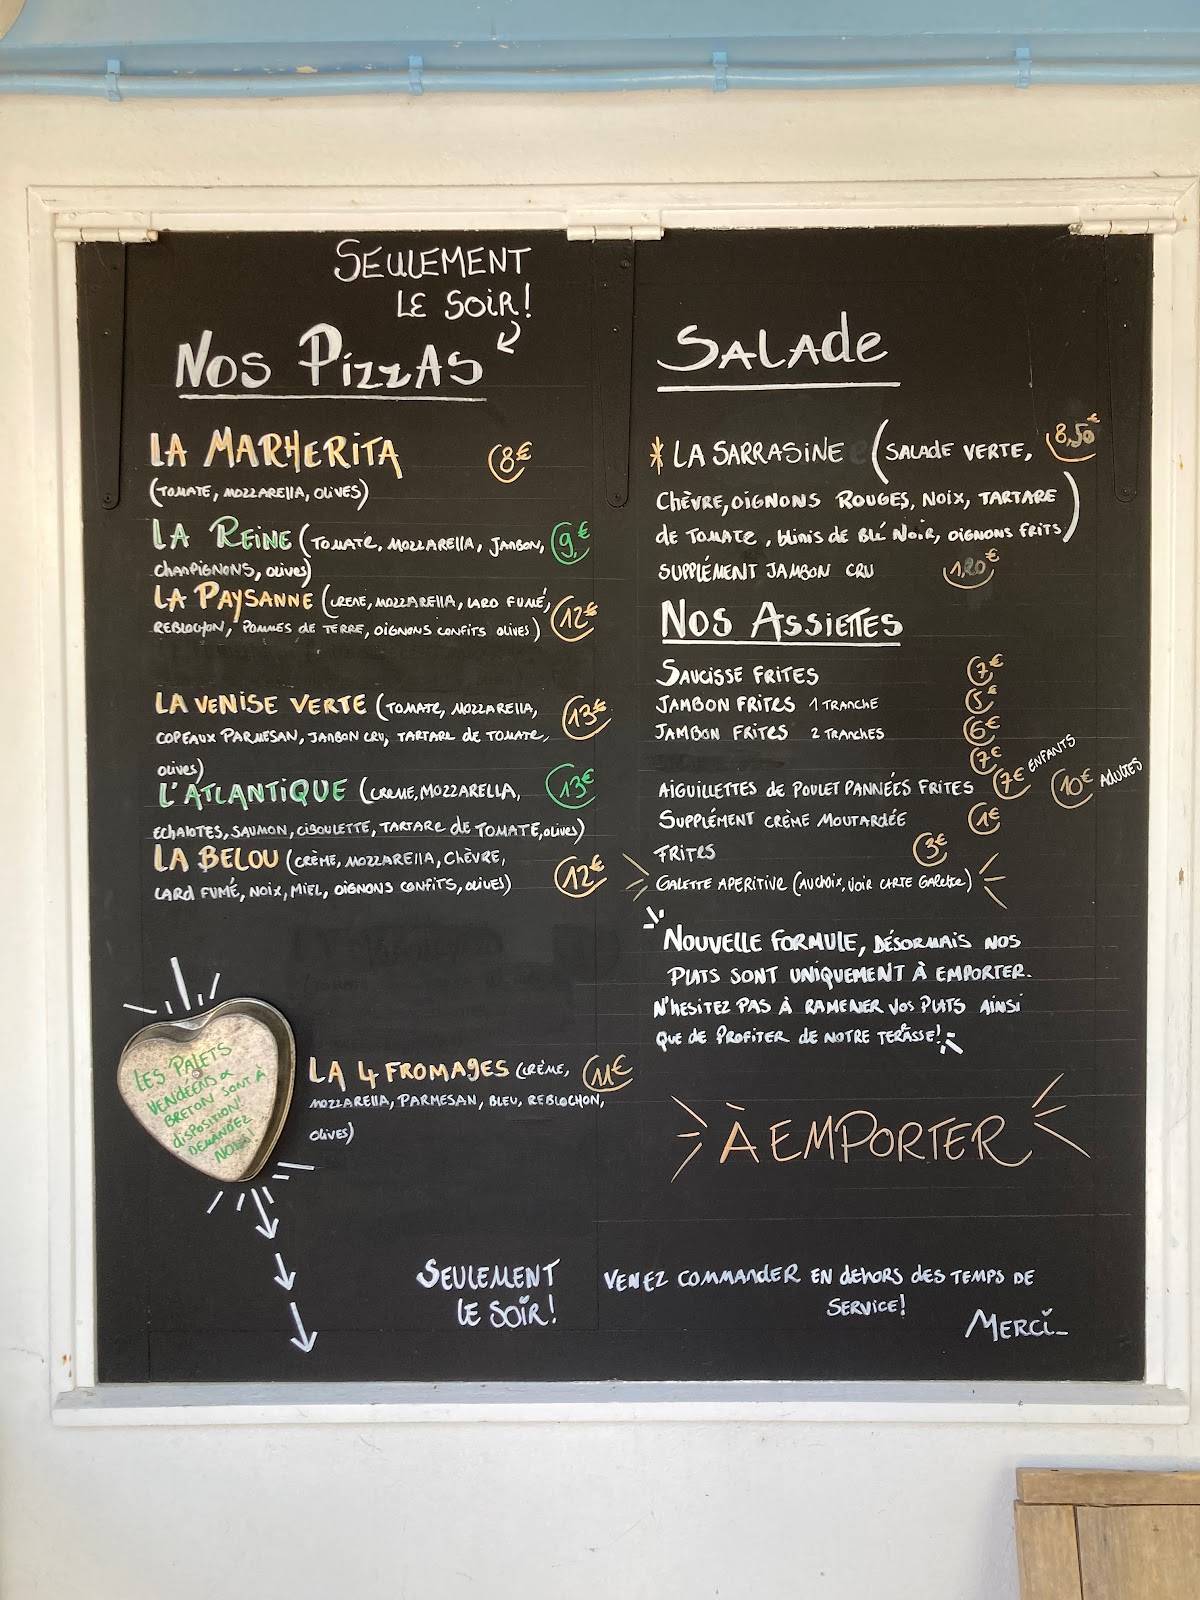 SEULEMENT
LE SOIR!
NOS PIZZAS
LA MARHERITA 8€
(TOMATE, MOZZARELLA, OLIVES)
LA REINE (TOMATE, MOZZARELLA, JAMBON, 9€
CHAMPIGNONS, OLIVES)
LA PAYSANNE (CREME, MOZZARELLA, LARD FUMÉ, 12€
REBLOCHON, POMMES DE TERRE, OIGNONS CONFITS OLIVES)
LA VENISE VERTE (TOMATE, MOZZARELLA, 13€
COPEAUX PARMESAN, JAMBON CRU, TARTARE DE TOMATE,
OLIVES)
L'ATLANTIQUE (CREME, MOZZARELLA, 13€
ECHALOTES, SAUMON, CIBOULETTE, TARTARE DE TOMATE, OLIVES)
LA BELOU (CRÈME, MOZZARELLA, CHÈVRE, 12€
LARD FUMÉ, NOIX, MIEL, OIGNONS CONFITS, OLIVES)
LES PALETS
VENDÉENS &
BRETON SONT À
DISPOSITION!
DEMANDEZ
NOUS!
LA 4 FROMAGES (CRÈME, 11€
MOZZARELLA, PARMESAN, BLEU, REBLOCHON,
OLIVES)
SEULEMENT
LE SOIR!
SALADE
* LA SARRASINE (SALADE VERTE, 8,50€
CHÈVRE, OIGNONS ROUGES, NOIX, TARTARE
DE TOMATE, BLINIS DE BLÉ NOIR, OIGNONS FRITS)
SUPPLÉMENT JAMBON CRU 1,20€
NOS ASSIETTES
SAUCISSE FRITES 7€
JAMBON FRITES 1 TRANCHE 5€
JAMBON FRITES 2 TRANCHES 6€
7€
AIGUILLETTES DE POULET PANNÉES FRITES 7€ ENFANTS 10€ ADULTES
SUPPLÉMENT CRÈME MOUTARDÉE 1€
FRITES 3€
GALETTE APERITIVE (AU CHOIX, VOIR CARTE GALETTE)
NOUVELLE FORMULE, DÉSORMAIS NOS
PLATS SONT UNIQUEMENT À EMPORTER.
N'HESITEZ PAS À RAMENER VOS PLATS AINSI
QUE DE PROFITER DE NOTRE TERASSE!
À EMPORTER
VENEZ COMMANDER EN DEHORS DES TEMPS DE
SERVICE!
MERCI_